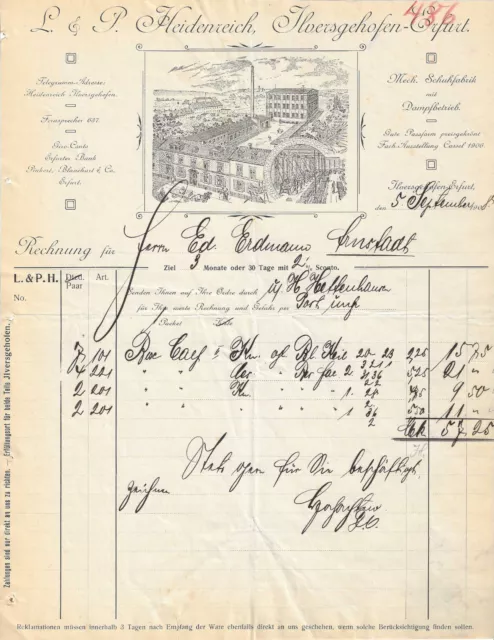 L. & P. Heidenreich, Ilversgehofen-Erfurt.
Telegramm-Adresse:
Heidenreich Ilversgehofen.
Fernsprecher 657
Giro-Conto
Erfurter Bank
Pinkert, Blanchart & Co.
Erfurt.
Mech. Schuhfabrik
mit
Dampfbetrieb.
Gute Passform preisgekrönt
Fach-Ausstellung Cassel 1906.
Ilversgehofen-Erfurt,
den 5 September 1908
Rechnung für Herrn Ed. Erdmann Arnstadt
Ziel 3 Monate oder 30 Tage mit 2 % Sconto.
L. & P. H.
No.
Dtzd. Paar
Art.
Senden Ihnen auf Ihre Ordre durch
für Ihre werte Rechnung und Gefahr per
Packet Kiste
7 101 225 15 75
4 201 525 21 "
2 201 9 50
2 201 550 11 "
Mk 57 25
Stets gern für Sie beschäftigt
zeichnen
Zahlungen sind nur direkt an uns zu richten. — Erfüllungsort für beide Teile Ilversgehofen.
Reklamationen müssen innerhalb 3 Tagen nach Empfang der Ware ebenfalls direkt an uns geschehen, wenn solche Berücksichtigung finden sollen.